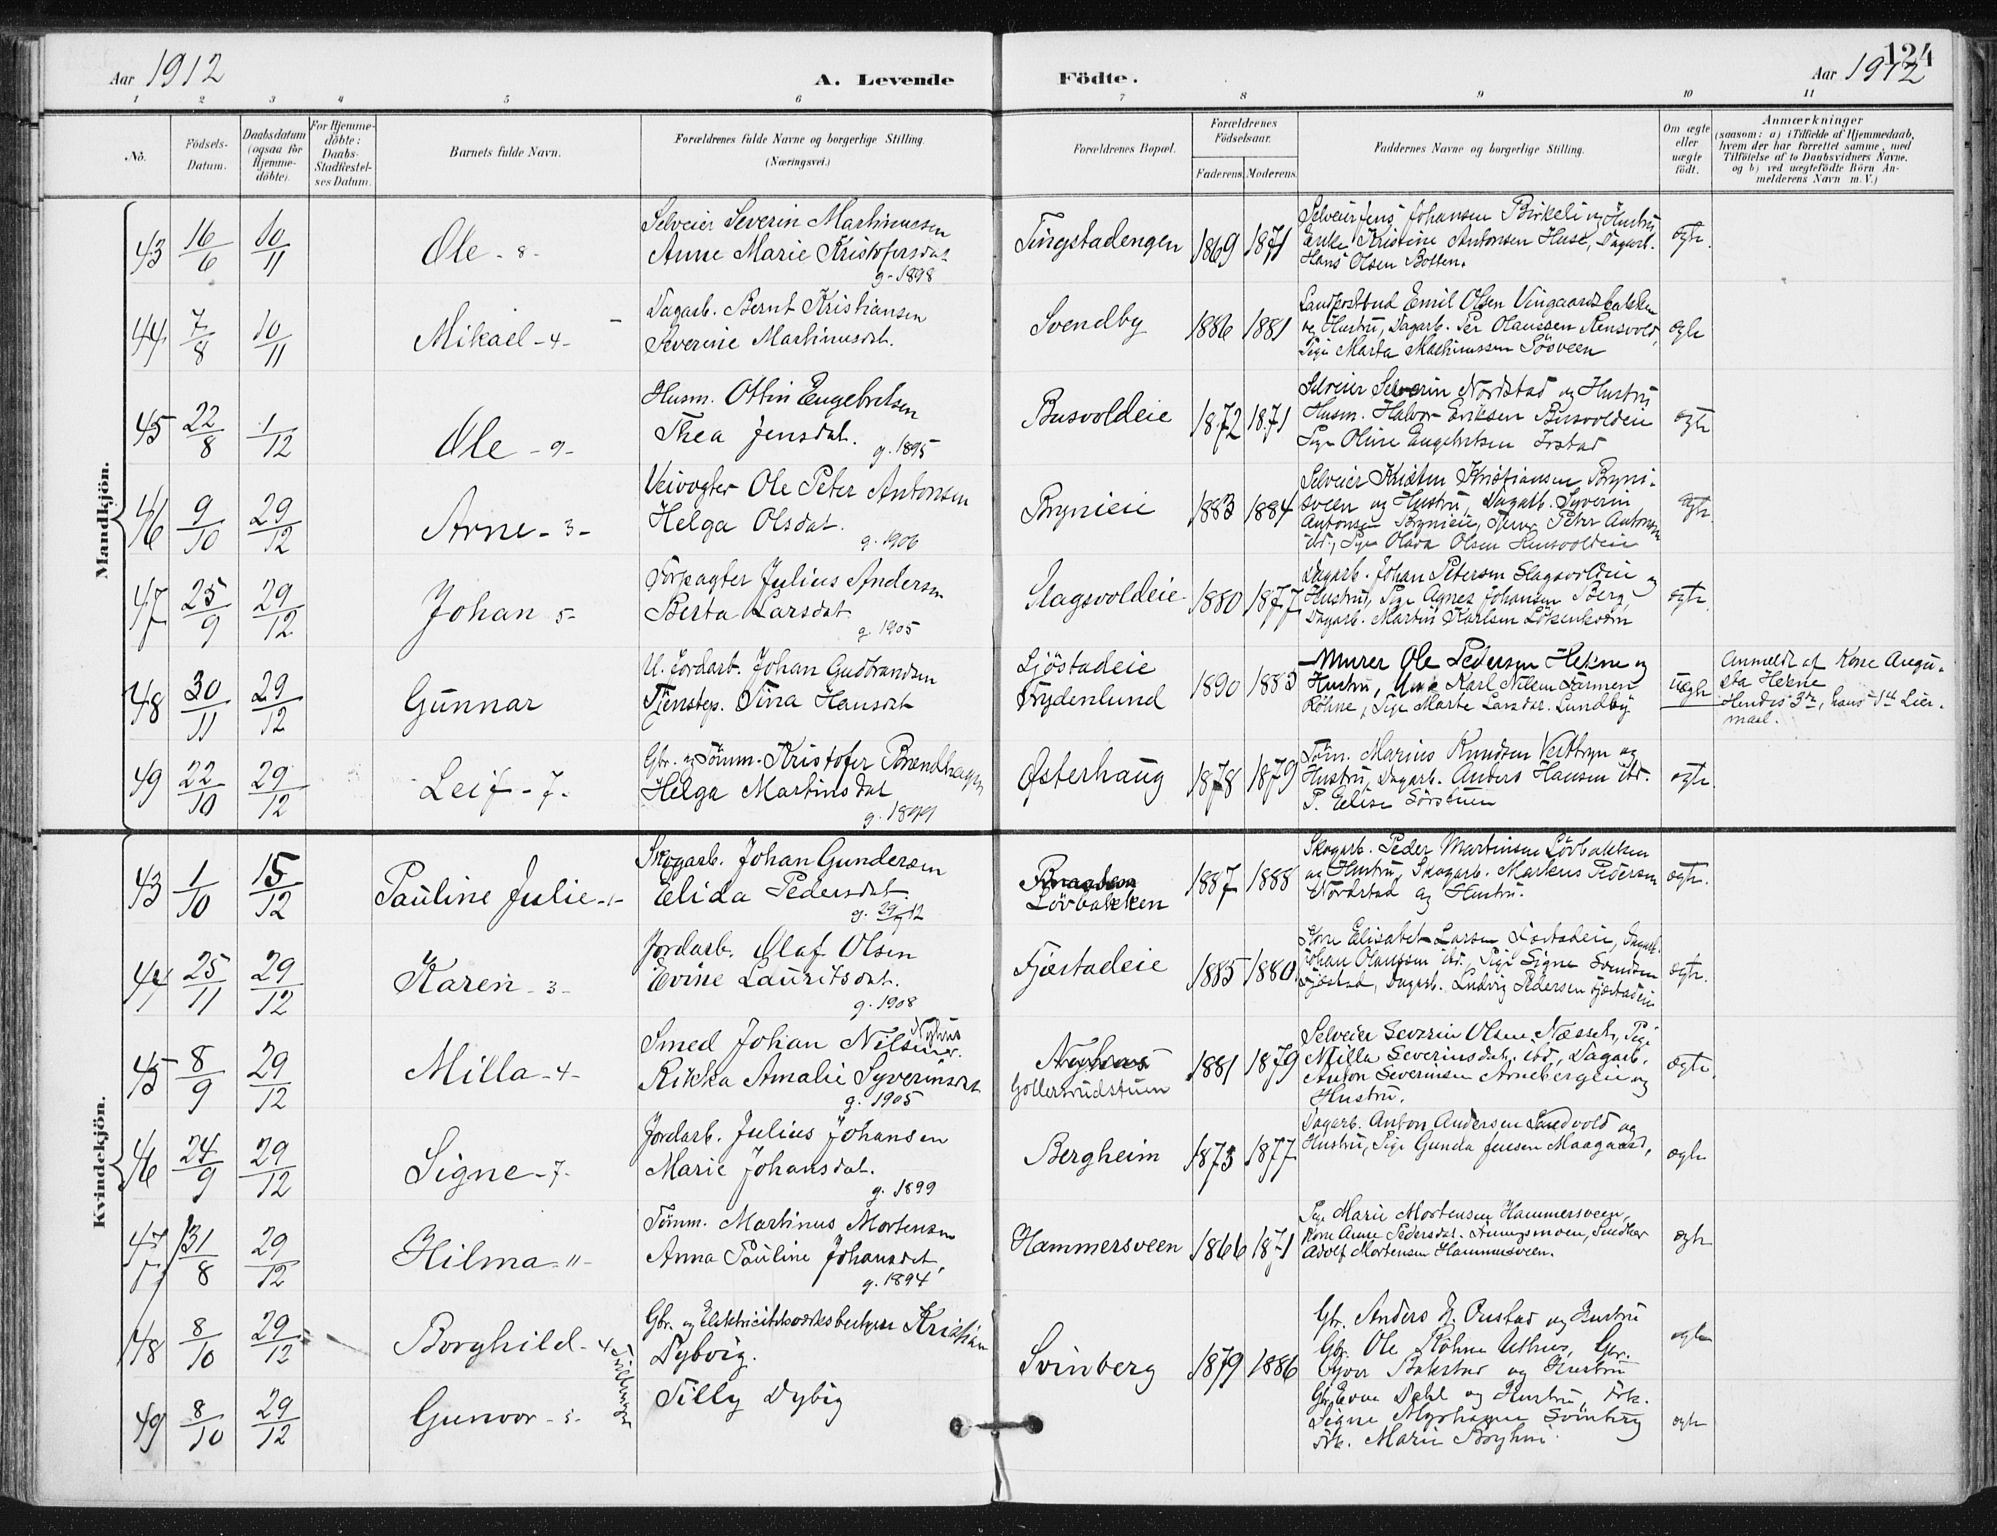 Aar 1912
A. Levende
Födte.
Aar 1912
124
1 2 3 4 5 6 7 8 9 10 11
No.
Födsels-Datum.
Daabsdatum (ogsaa for Hjemmedöbte).
For Hjemmedöbte: Daabs-Stadfæstelses Datum.
Barnets fulde Navn.
Forældrenes fulde Navne og borgerlige Stilling.
(Næringsvei.)
Forældrenes Bopæl.
Forældrenes Födselsaar.
Faderens. Moderens.
Faddernes Navne og borgerlige Stilling.
Om ægte eller uægte födt.
Anmærkninger
(saasom: a) i Tilfælde af Hjemmedaab,
hvem der har forrettet samme, med
Tilföielse af to Daabsvidners Navne.
og b) ved uægtefödte Börn An-
melderens Navn m. V.)
Mandkjön.
43 16/6 10/11 Ole - 8 -
Selveier Severin Martinussen
Anne Marie Kristofersdat.
g. 1898
Tingstadengen 1869 1871
Selveier Jens Johansen Birkeli og Hustru
Enke Kristine Antonsen Huse, Dagarb.
Hans Olsen Botten.
ægte.
44 7/8 10/11 Mikael - 4 -
Dagarb. Bernt Kristiansen
Severine Martinusdat.
Svendby 1886 1881
Landpostbud Emil Olsen Vingaardsbakken
og Hustru, Dagarb. Per Olaussen Rensvold,
Pige Marta Martinussen Sösveen
ægte
45 22/8 1/12 Ole - 9 -
Husm. Ottin Engebretsen
Thea Jensdat. g. 1895
Busvoldeie 1872 1871
Selveier Severin Nordstad og Hustru
Husm. Halvor Eriksen Busvoldeie
Pige Oline Engebretsen
ægte
46 9/10 29/12 Arne - 3 -
Veivogter Ole Peter Antonsen
Helga Olsdat.
g. 1906
Brynieie 1883 1884
Selveier Kristen Kristiansen Bryni-
sveen og Hustru, Dagarb. Syverin
Antonsen Brynieie, Peter Antonsen
ibd., Pige Olava Olsen
ægte.
47 25/9 29/12 Johan 5 -
Forpagter Julius Andersen
Berta Larsdat.
g. 1905
Slagsvoldeie 1880 1877
Dagarb. Johan Petersen Slagsvoldeie og
Hustru, Pige Agnes Johansen Berg,
Dagarb. Martin Karlsen Lökenholm
ægte.
48 30/11 29/12 Gunnar
U. Jordarb. Johan Gudbrandsen
Tjenstep. Tina Hansdat
Ljöstadeie
Frydenlund 1890 1883
Murer Ole Pedersen Hekne og
Hustru, Karl Nilsen
Köhne, Pige Marte Larsdat. Lundby
uægte
Anmeldt af Kone Augu-
sta Hekne
Hendes 3de, hans 1ste Leier-
maal.
49 22/10 29/12 Leif - 7 -
Gbr. og Tömm. Kristofer Brændhagen
Helga Martinsdat
g. 1899
Østerhaug 1878 1879
Töm. Marius Knudsen og
Hustru, Dagarb. Anders Hansen ibd.
P. Elise Sörstuen
ægte.
Kvindekjön.
43 1/10 15/12 Pauline Julie - 1 -
Skogarb. Johan Gundersen
Elida Pedersdat.
Lövbakken 1887 1888
Skogarb. Peder Martinsen Lövbakken
og Hustru, Skogarb. Markus Pedersen
Nordstad og Hustru.
ægte.
44 25/11 29/12 Karen - 3 -
Jordarb. Olaf Olsen
Evine Lauritsdat.
g. 1908
Fjæstadeie 1885 1880
Kone Elisabet Larsen Fjæstadeie, Dagarb.
Johan Olaussen ibd., Pige Signe Svendsen
Fjæstad, Dagarb. Ludvig Pedersen Fjæstadeie
ægte.
45 8/9 29/12 Milla - 4 -
Smed Johan Nilsen Nyhus
Rikka Amalie Syverinsdat
g. 1905
Nyhus
Gollertrudstuen 1881 1879
Selveier Severin Olsen Næsset, Pige
Milla Severinsdat. ibd., Dagarb.
Anton Severinsen Arnebergeie og
Hustru.
ægte.
46 24/9 29/12 Signe - 7 -
Jordarb. Julius Johansen
Marie Johansdat.
g. 1899
Bergheim 1873 1877
Dagarb. Anton Andersen Sandvold og
Hustru, Pige Gunda Jensen Maagaard,
ægte
47 31/8 29/12 Hilma - 11 -
Tömm. Martinus Mortensen
Anna Pauline Johansdat,
g. 1894
Hammersveen 1866 1871
Pige Marie Mortensen Hammersveen,
Kone Anne Pedersdat. Snedker
Adolf Mortensen Hammersveen.
ægte
48 8/10 29/12 Borghild - 4
Tvillinger
Gbr. og Elektricitetsværksbestyrer Kristian
Dybvig.
Svinberg 1879 1886
Gbr. Anders og Hustru
Gbr. Ole Köhne Gbr.
og Hustru
ægte
49 8/10 29/12 Gunvor - 5 -
Tilly Dybvig
Gbr. Dahl og Hustru, Frk.
Signe Svinberg
Frk. Marie
ægte